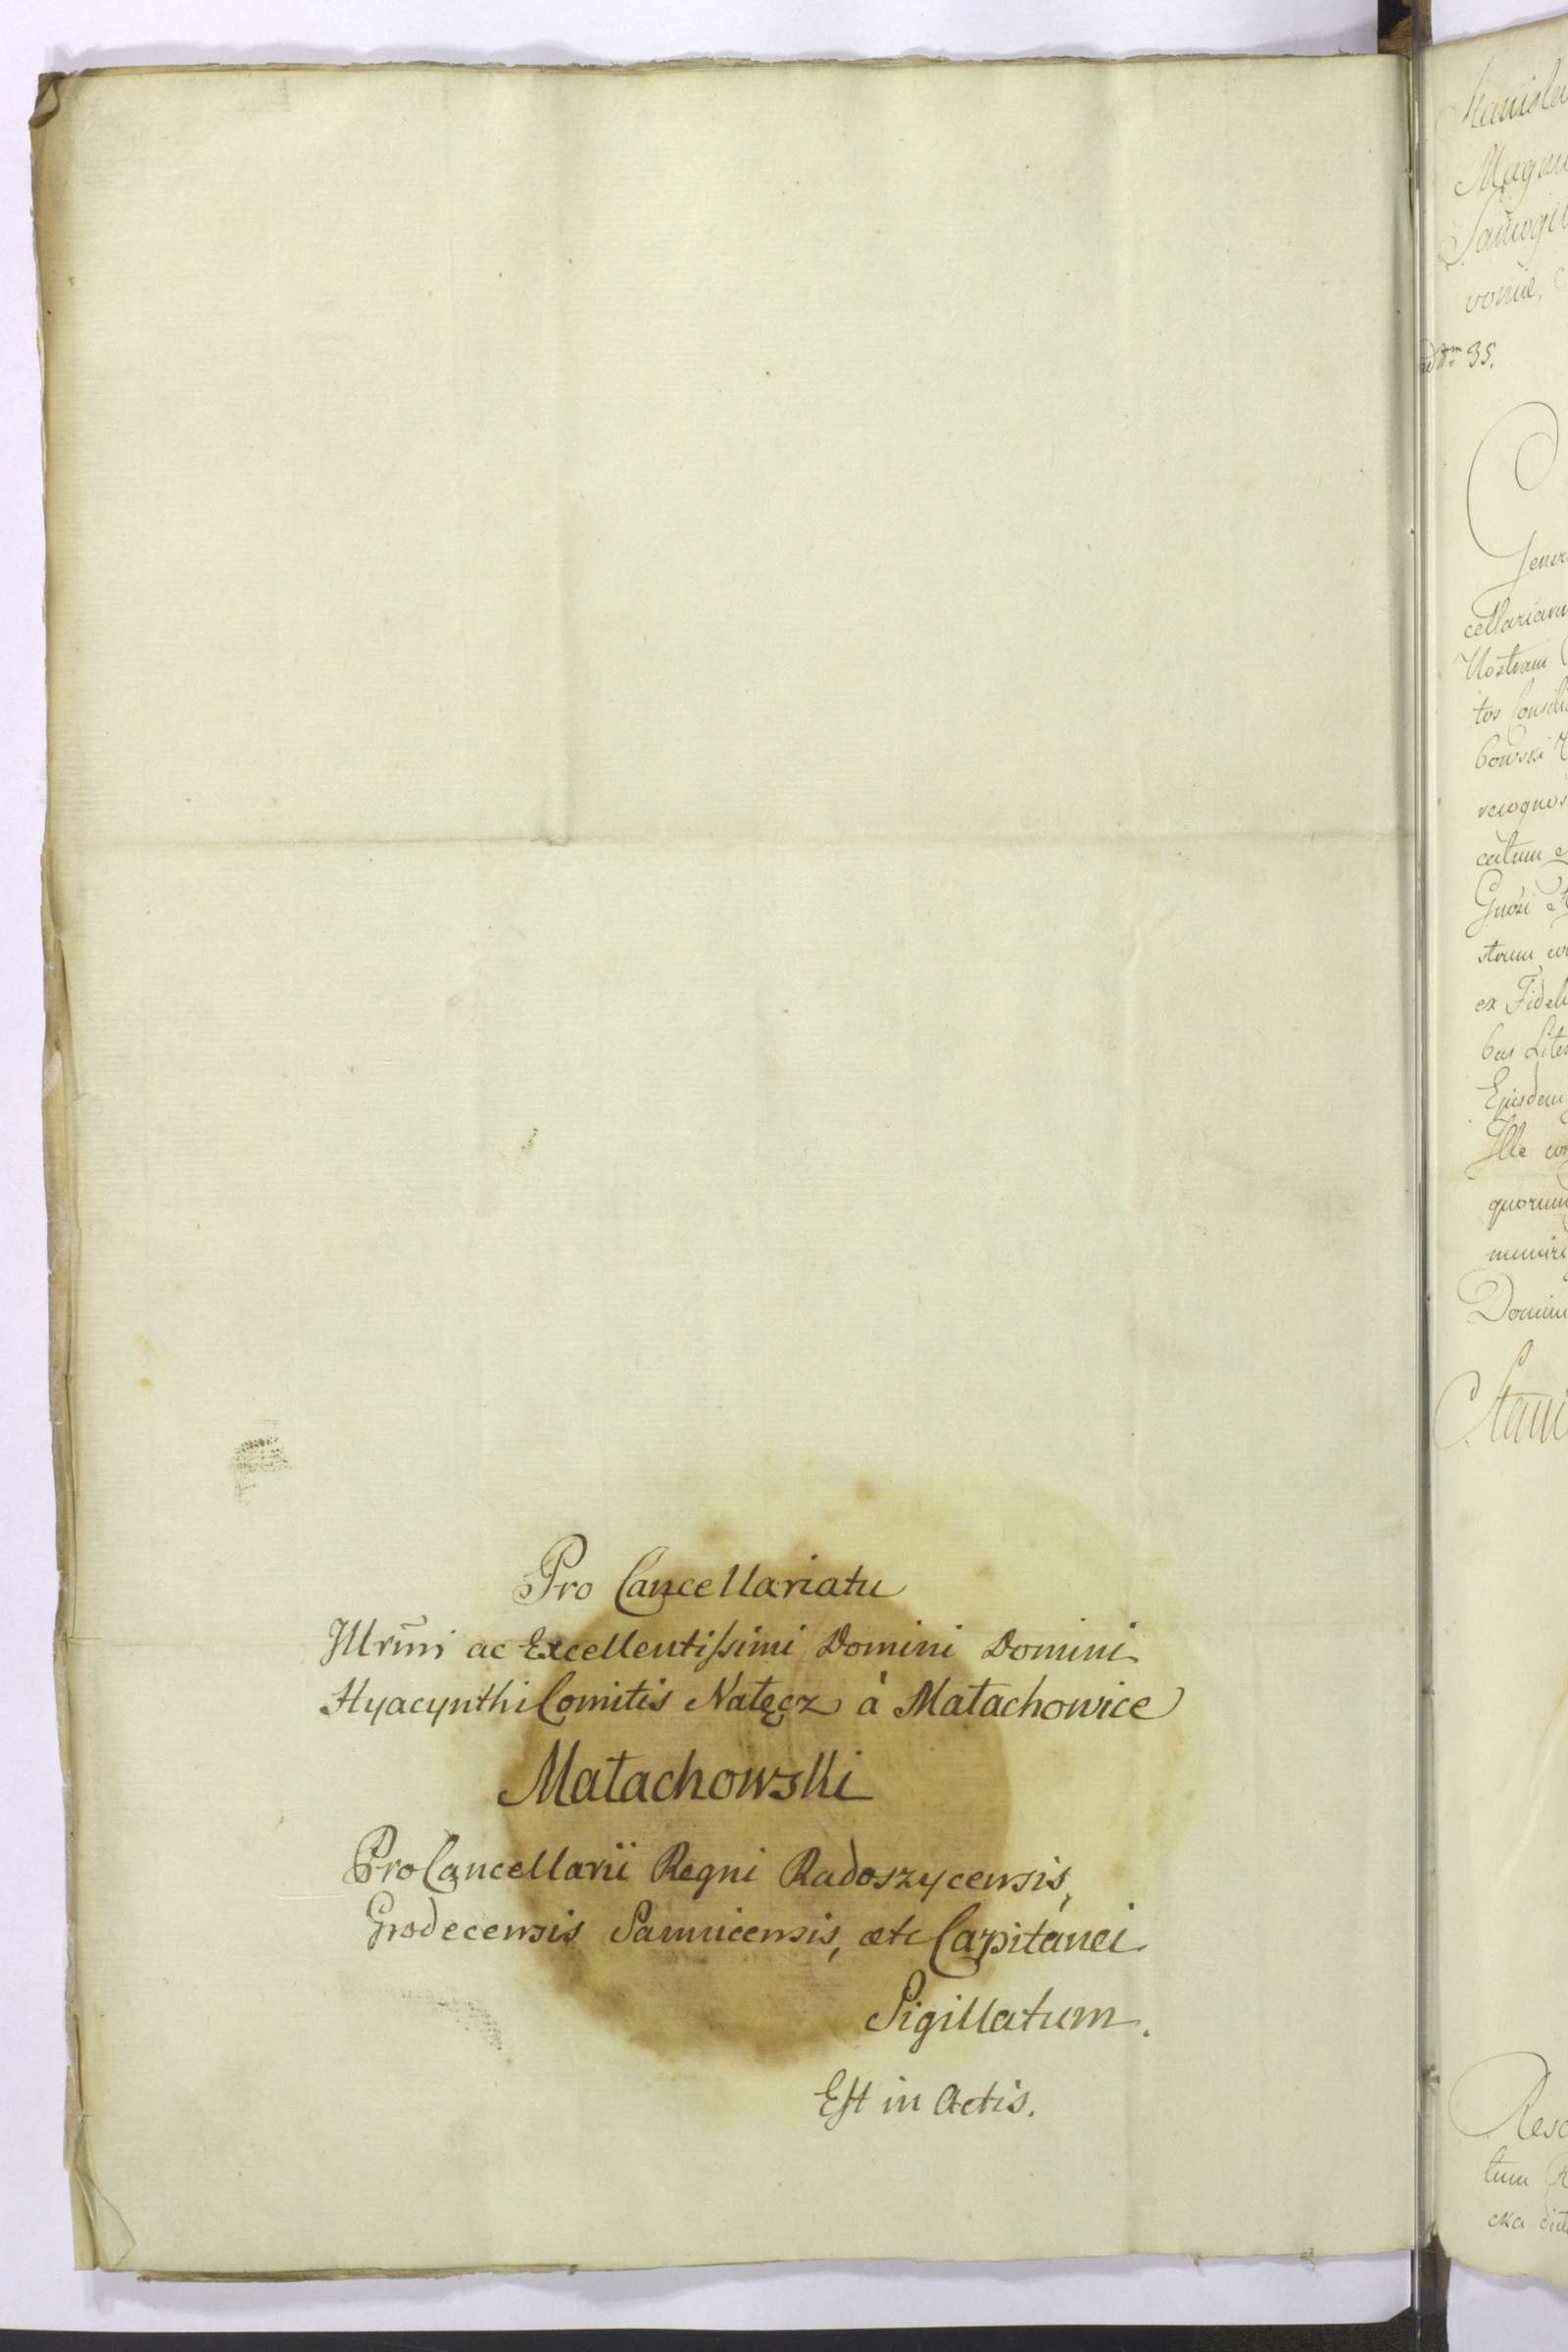 Pro Cancellariatu
Illrm̃i ac Excellentissimi Domini Domini
Hyacynthi Comitis Nałęcz à Małachowice
Małachowski
ProCancellarii Regni Radoszycensis,
Grodecensis Sannicensis, etc Capitanei
Sigillatum.
Est in Actis.
35.
cellariaru
Nostram
tos Consili
bowski
recognos
catum
strum
ex Fidel
bus Liter
Ejusdem
Ille con
quorum
munire
Domini
Resc
tum R